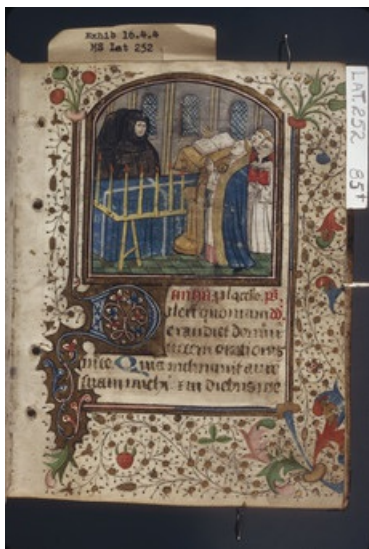 Exhib 16.4.4
MS Lat 252
LAT. 252 85r
placebo. ps
Dilexi quoniam
exaudiet
vocem orationis
mee. Quia inclinauit
suam michi et in diebus